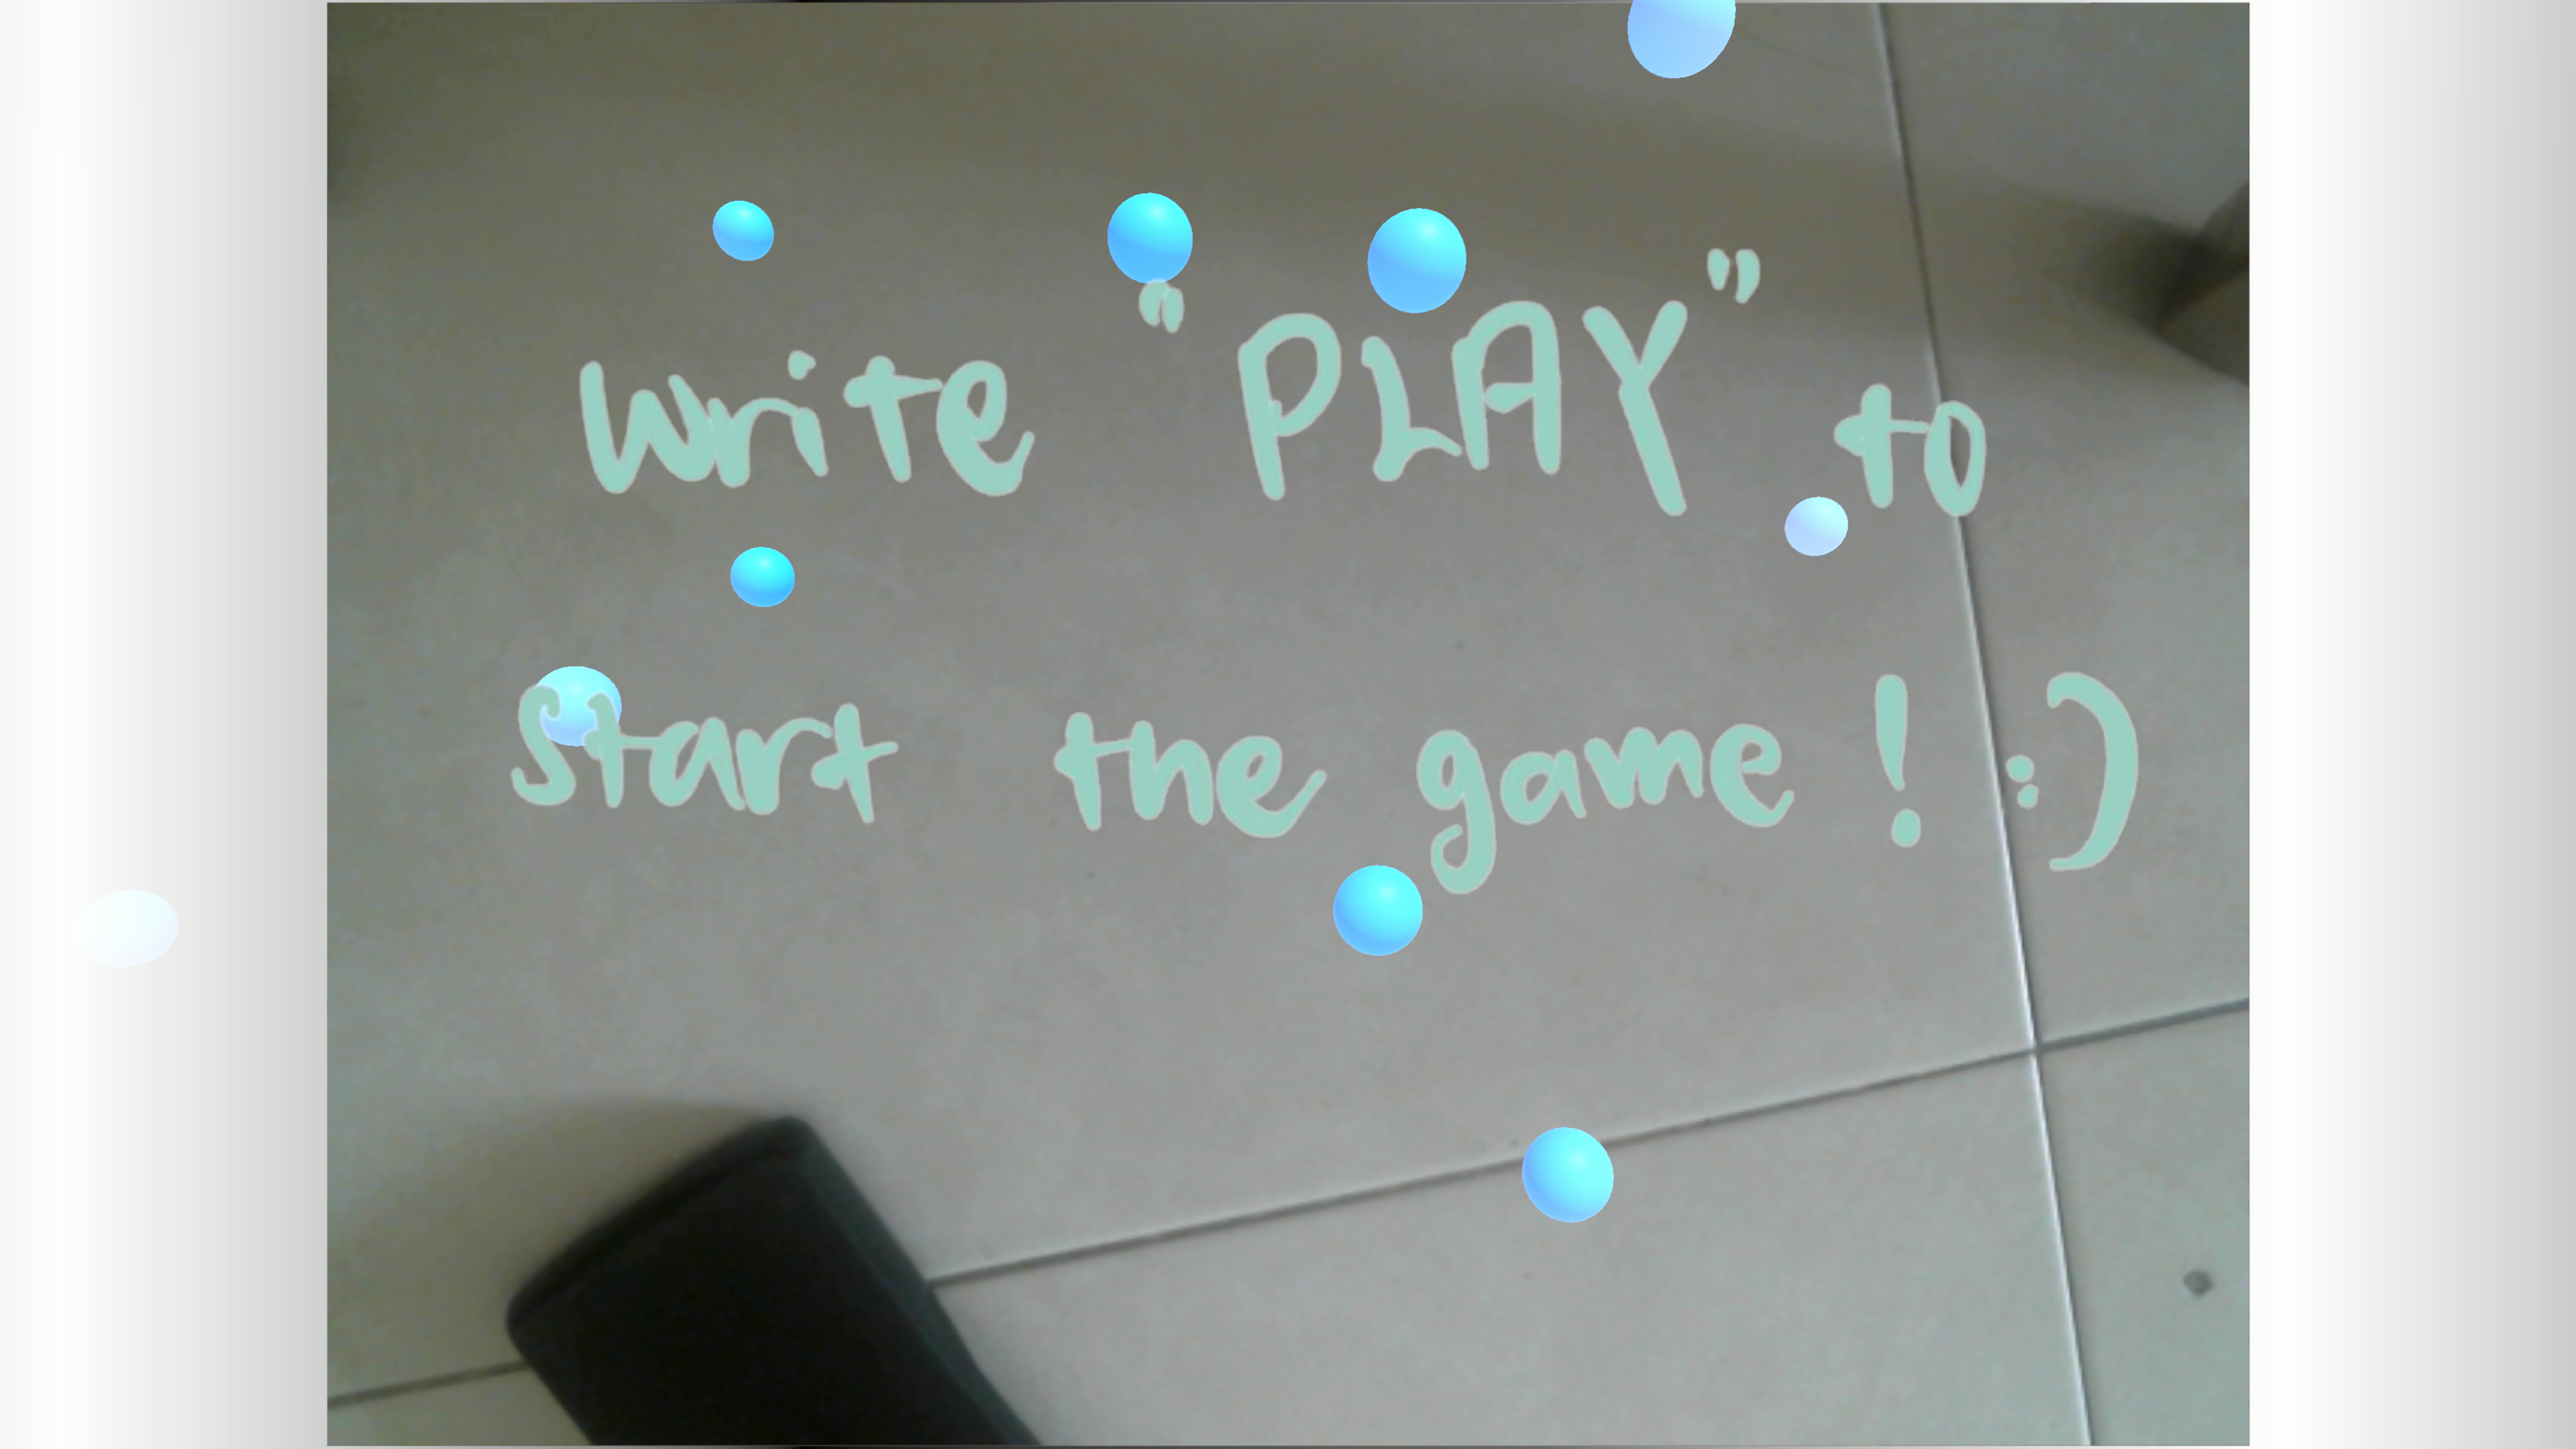 Write "PLAY" to
Start the game ! :)